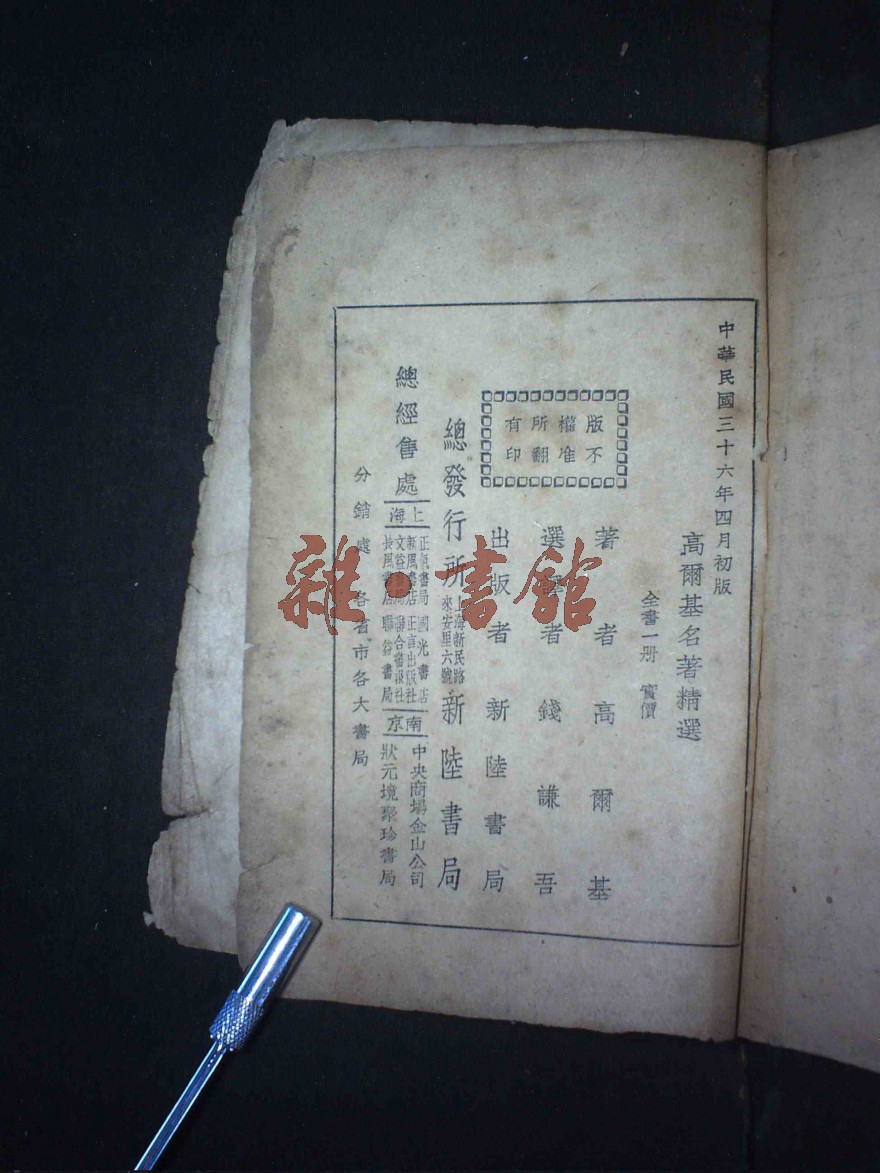 中華民國三十六年四月初版
高爾基名著精選
全書一册 實價
版權所有
不准翻印
著者 高爾基
選者 錢謙吾
出版者 新陸書局
總發行所 上海新民路 來安里六號 新陸書局
總經售處
上海
書局 國光書店
新風書店 正言出版社
文 聯合書報社
長風書店 聯益書局
南京
中央商場金山公司
狀元境聚珍書局
分銷處 各省市各大書局
雜·書館